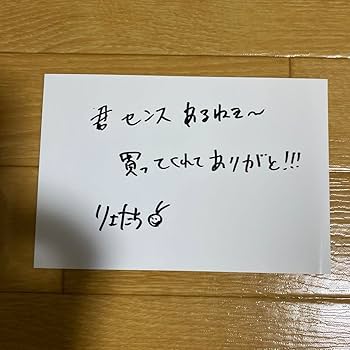 君 センス あるねェ〜
買ってくれて ありがと!!!
りえたち